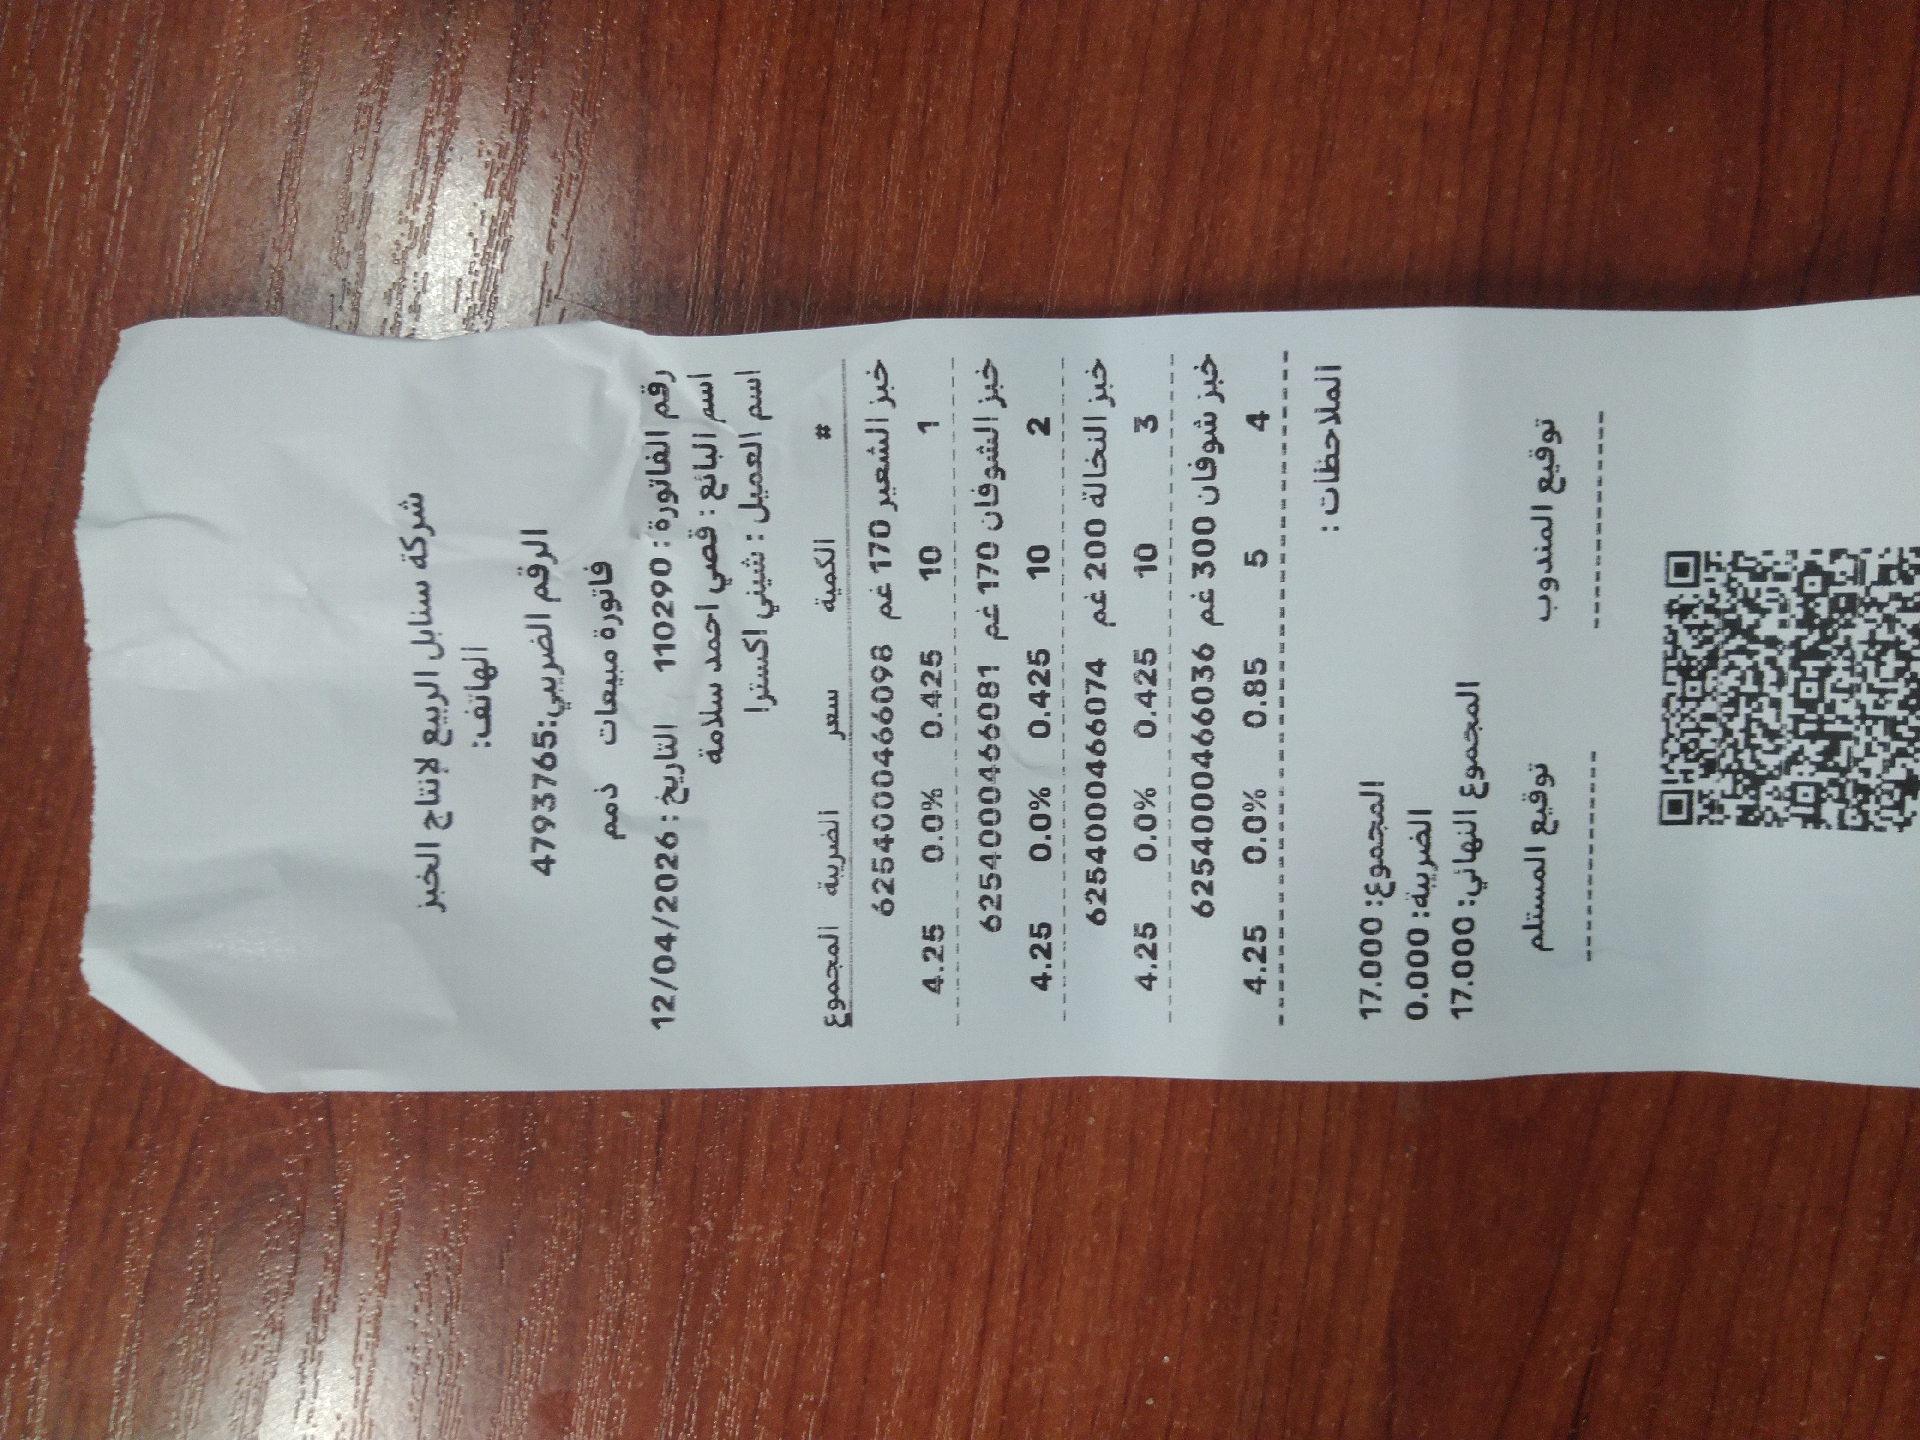 شركة سنابل الربيع لإنتاج الخبز
الهاتف:
الرقم الضريبي:4793765
فاتورة مبيعات ذمم
رقم الفاتورة : 110290 التاريخ : 12/04/2026
اسم البائع : قصي احمد سلامة
اسم العميل : شيني اكسترا
# الكمية سعر الضريبة المجموع
خبز الشعير 170 غم 6254000466098
1 10 0.425 0.0% 4.25
خبز الشوفان 170 غم 6254000466081
2 10 0.425 0.0% 4.25
خبز النخالة 200 غم 6254000466074
3 10 0.425 0.0% 4.25
خبز شوفان 300 غم 6254000466036
4 5 0.85 0.0% 4.25
الملاحظات :
المجموع: 17.000
الضريبة: 0.000
المجموع النهائي: 17.000
توقيع المندوب توقيع المستلم